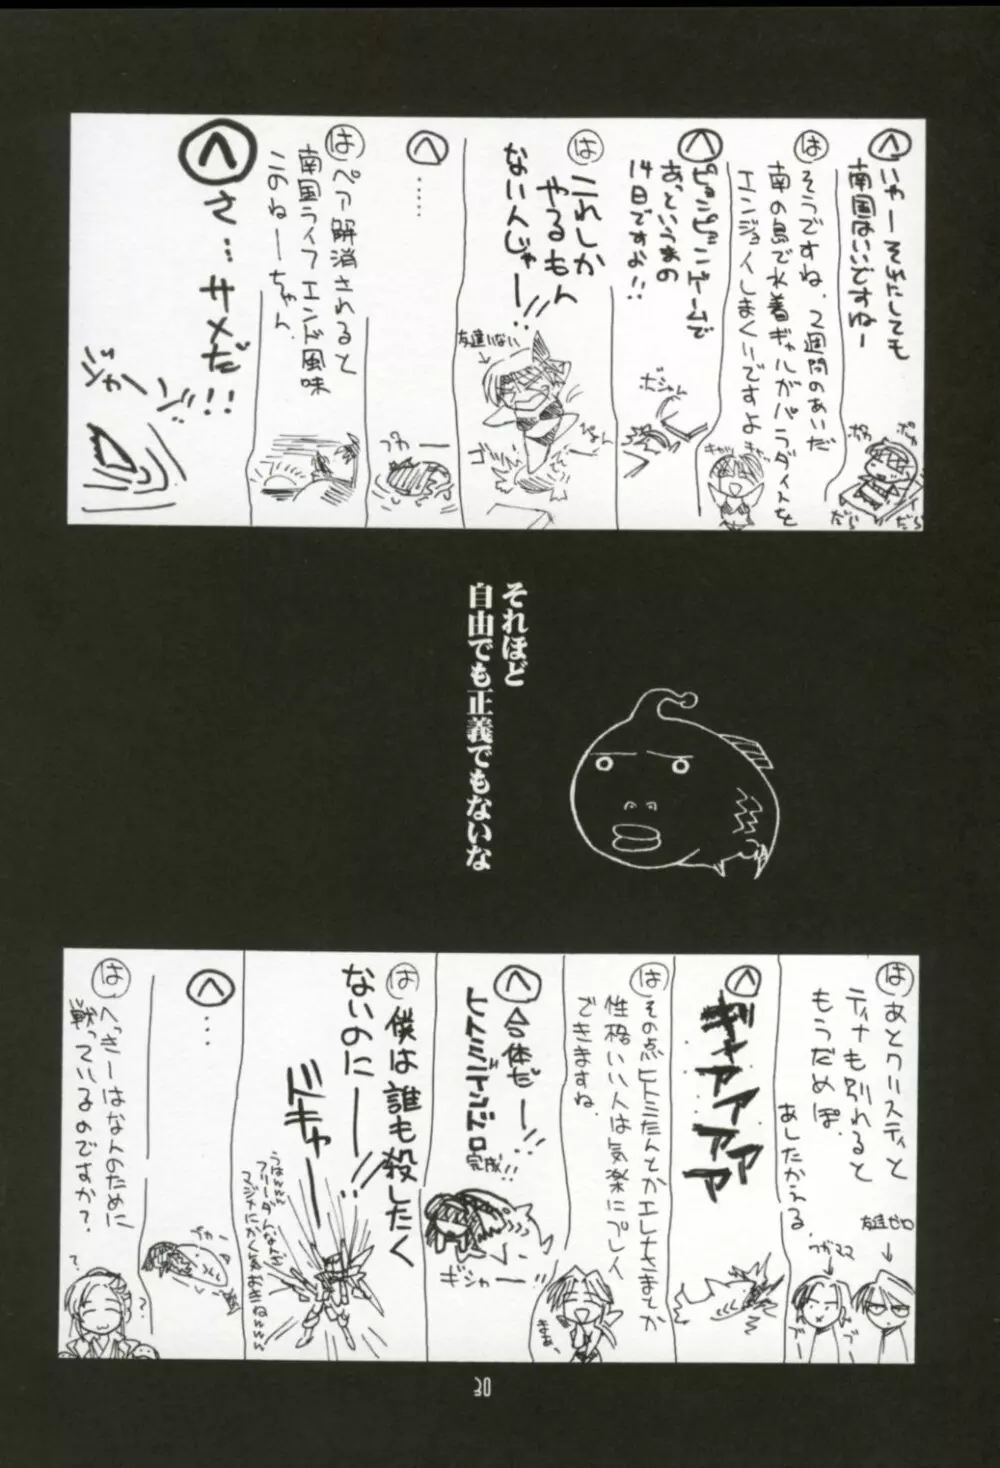 へ いやーそれにしても
南国はいいですねー
ポカ
ポカ
だら
だら
は そうですね、2週間のあいだ
南の島で水着ギャルがパラダイスを
エンジョイしまくりですよ
へ ピョンピョンゲームで
あっというまの
14日ですよ!!
ボシャー
は これしか
やるもん
ないんじゃー!!
友達いない
へ ……
プカー
は ペア解消されると
南国ライフエンド風味
このねーちゃん
へ さ…サメだ!!
ジャーン
それほど
自由でも正義でもないな
は あとクリスティと
ティナも別れると
もうだめぽ。
あしたかえる。
友達ゼロ
ワガママ
へ ギャアアアアア
は その点ヒトミたんとかエレナさまとか
性格いい人は気楽にプレイ
できますね。
まあ、
へ 合体だー!!
ヒトミティンドロ
完成!!
ギシャー!!
は 僕は誰も殺したく
ないのにー!!
ドギャー
うはwww
フリーダムなんか
マジでにかく気がきねwwww
へ …
プカー
は へっきーはなんのために
戦っているのですか?
?
?
30